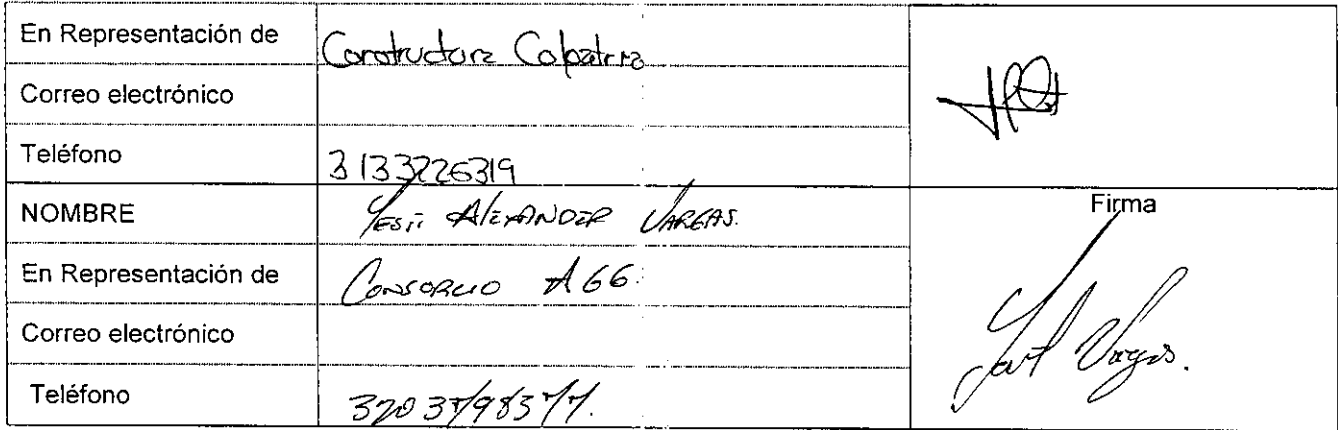 En Representación de Constructora Colpatria
Correo electrónico
Teléfono 3133226319
NOMBRE Yesit Alexander Vargas. Firma
En Representación de Consorcio A66.
Correo electrónico
Teléfono 3203798377.
Vargas.